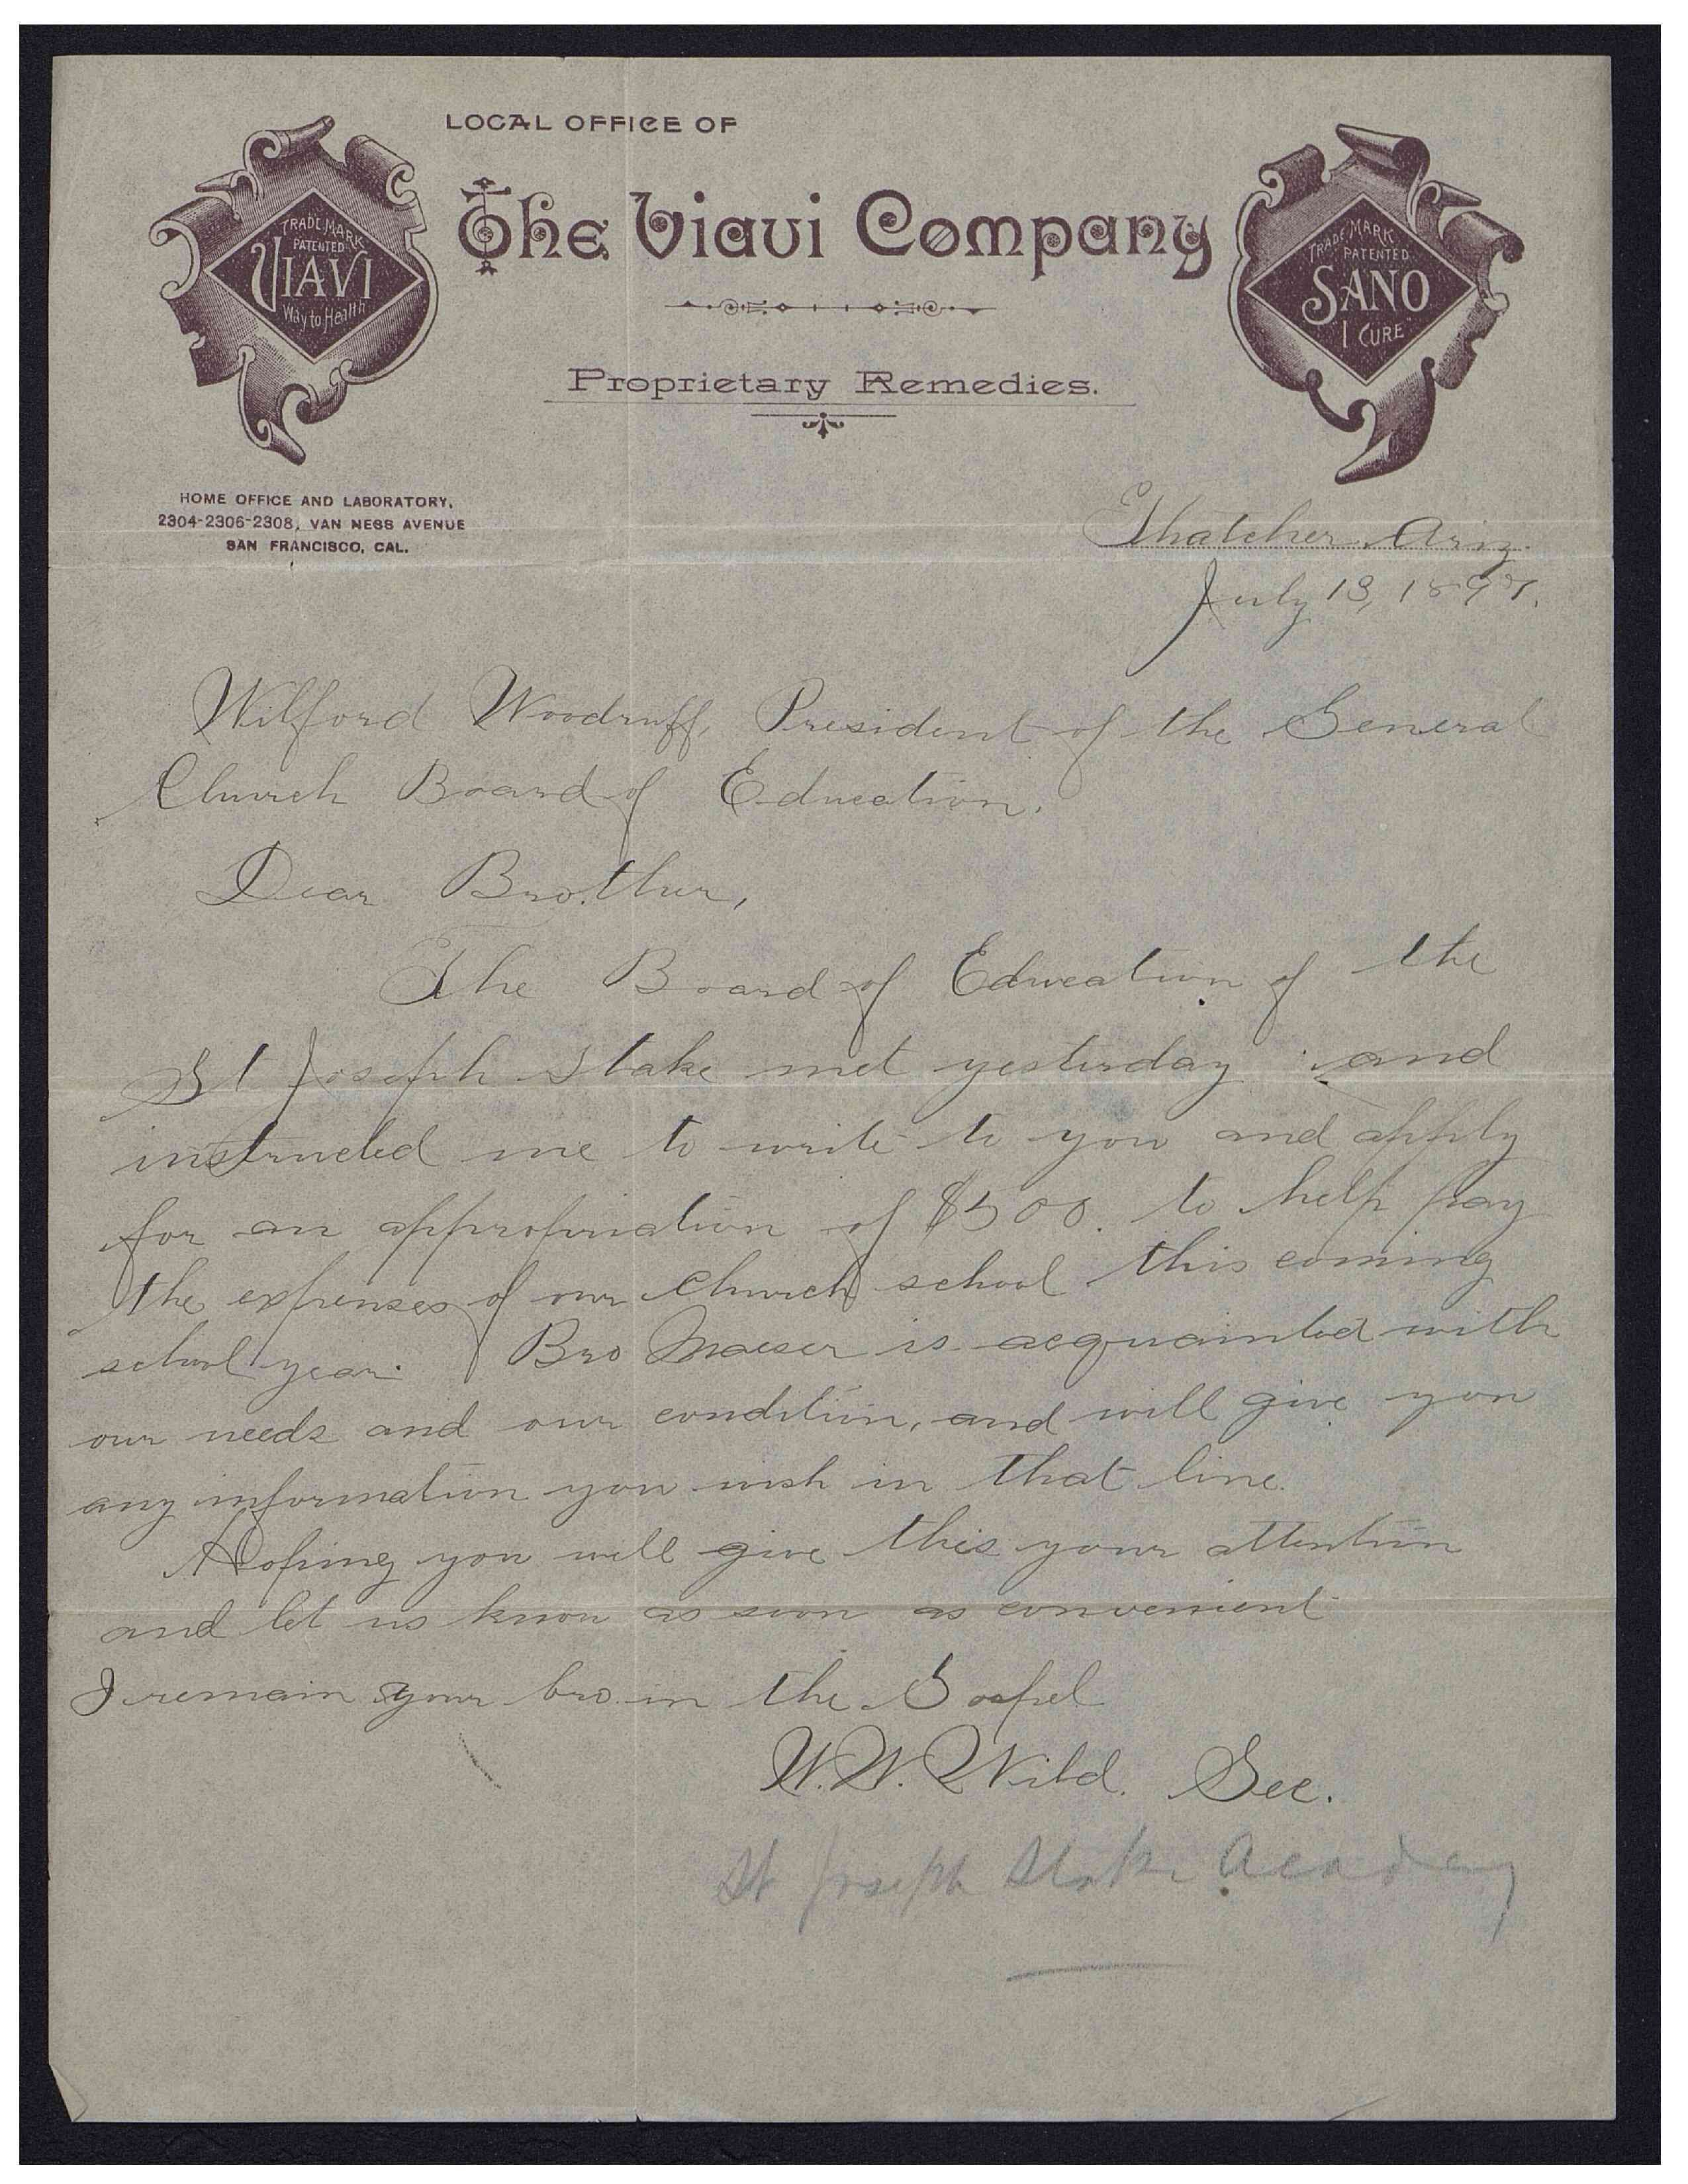 LOCAL OFFICE OF
The Viavi Company
TRADE MARK
PATENTED
VIAVI
Way to Health
TRADE MARK
PATENTED
SANO
I CURE
Proprietary Remedies.
HOME OFFICE AND LABORATORY,
2304-2306-2308, VAN NESS AVENUE
SAN FRANCISCO, CAL.
Thatcher Ariz.
July 13, 1897.
Wilford Woodruff, President of the General
Church Board of Education.
Dear Brother,
The Board of Education of the
St Joseph Stake met yesterday and
instructed me to write to you and apply
for an appropriation of $500. to help pay
the expenses of our Church school this coming
school year. Bro Maeser is acquainted with
our needs and our condition, and will give you
any information you wish in that line.
Hoping you will give this your attention
and let us know as soon as convenient
I remain your bro. in the Gospel
W.W. Wild. Sec.
St Joseph Stake Academy